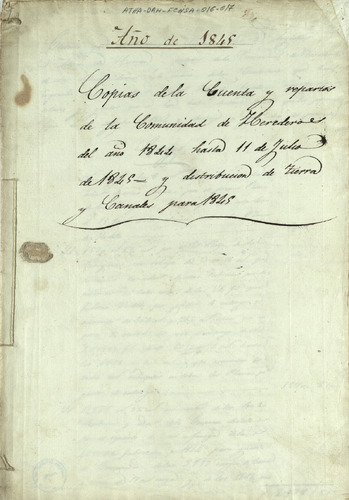 ATHA-DAH-FONSA-016-017
Año de 1845
Copias de la Cuenta y repartos
de la Comunidad de Herederos
del año 1844 hasta 11 de Julio
de 1845- y distribucion de tierra
y Canales para 1845